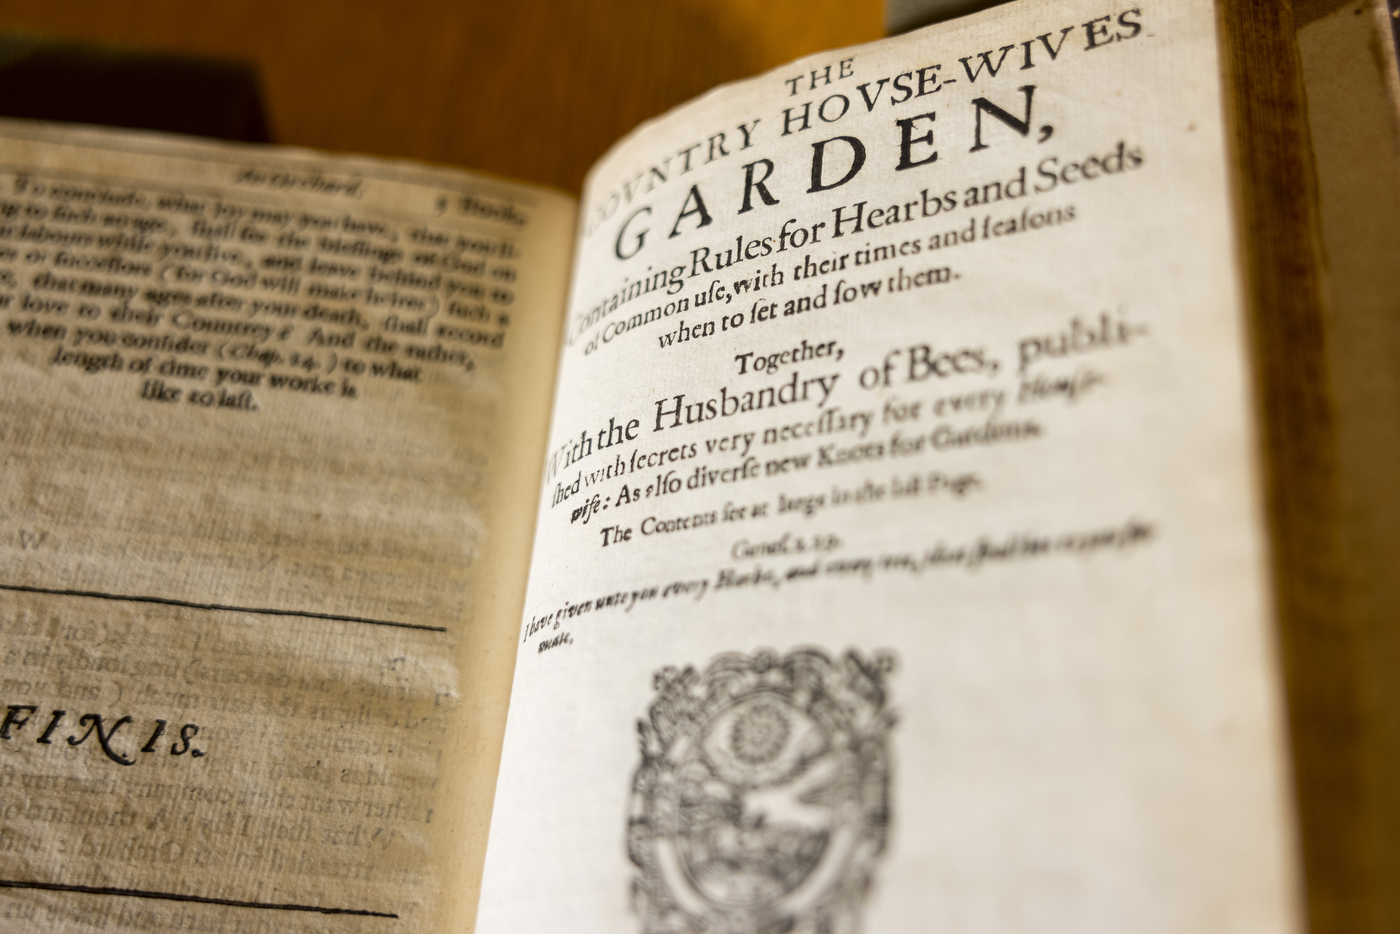 An Orchard. 3 Booke
To conclude, what joy may you have, that you li-
ng to such an age, shall see the blessings of God on
r labours while you live, and leave behind you to
es or successors (for God will make heires) such a
e, that many ages after your death, shall record
r love to their Countrey? And the rather,
when you consider (Chap. 14.) to what
length of time your worke is
like to last.
FINIS.
THE
COVNTRY HOVSE-WIVES
GARDEN,
Containing Rules for Hearbs and Seeds
of Common uſe, with their times and ſeaſons
when to ſet and ſow them.
Together,
With the Husbandry of Bees, publi-
ſhed with ſecrets very neceſſary for every Houſe-
wife: As alſo diverſe new Knots for Gardens.
The Contents ſee at large in the laſt Page.
Geneſ. 1. 29.
I have given unto you every Herbe, and every tree, that ſhall be to you for
meate.